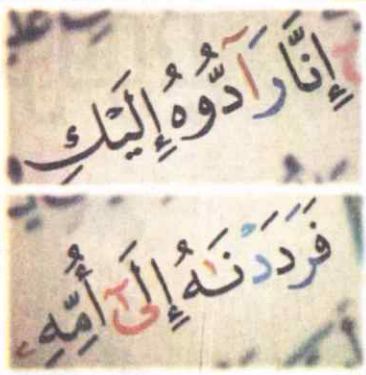 إِنَّا رَآدُّوهُ إِلَيْكِ
فَرَدَدْنَٰهُ إِلَىٰٓ أُمِّهِ